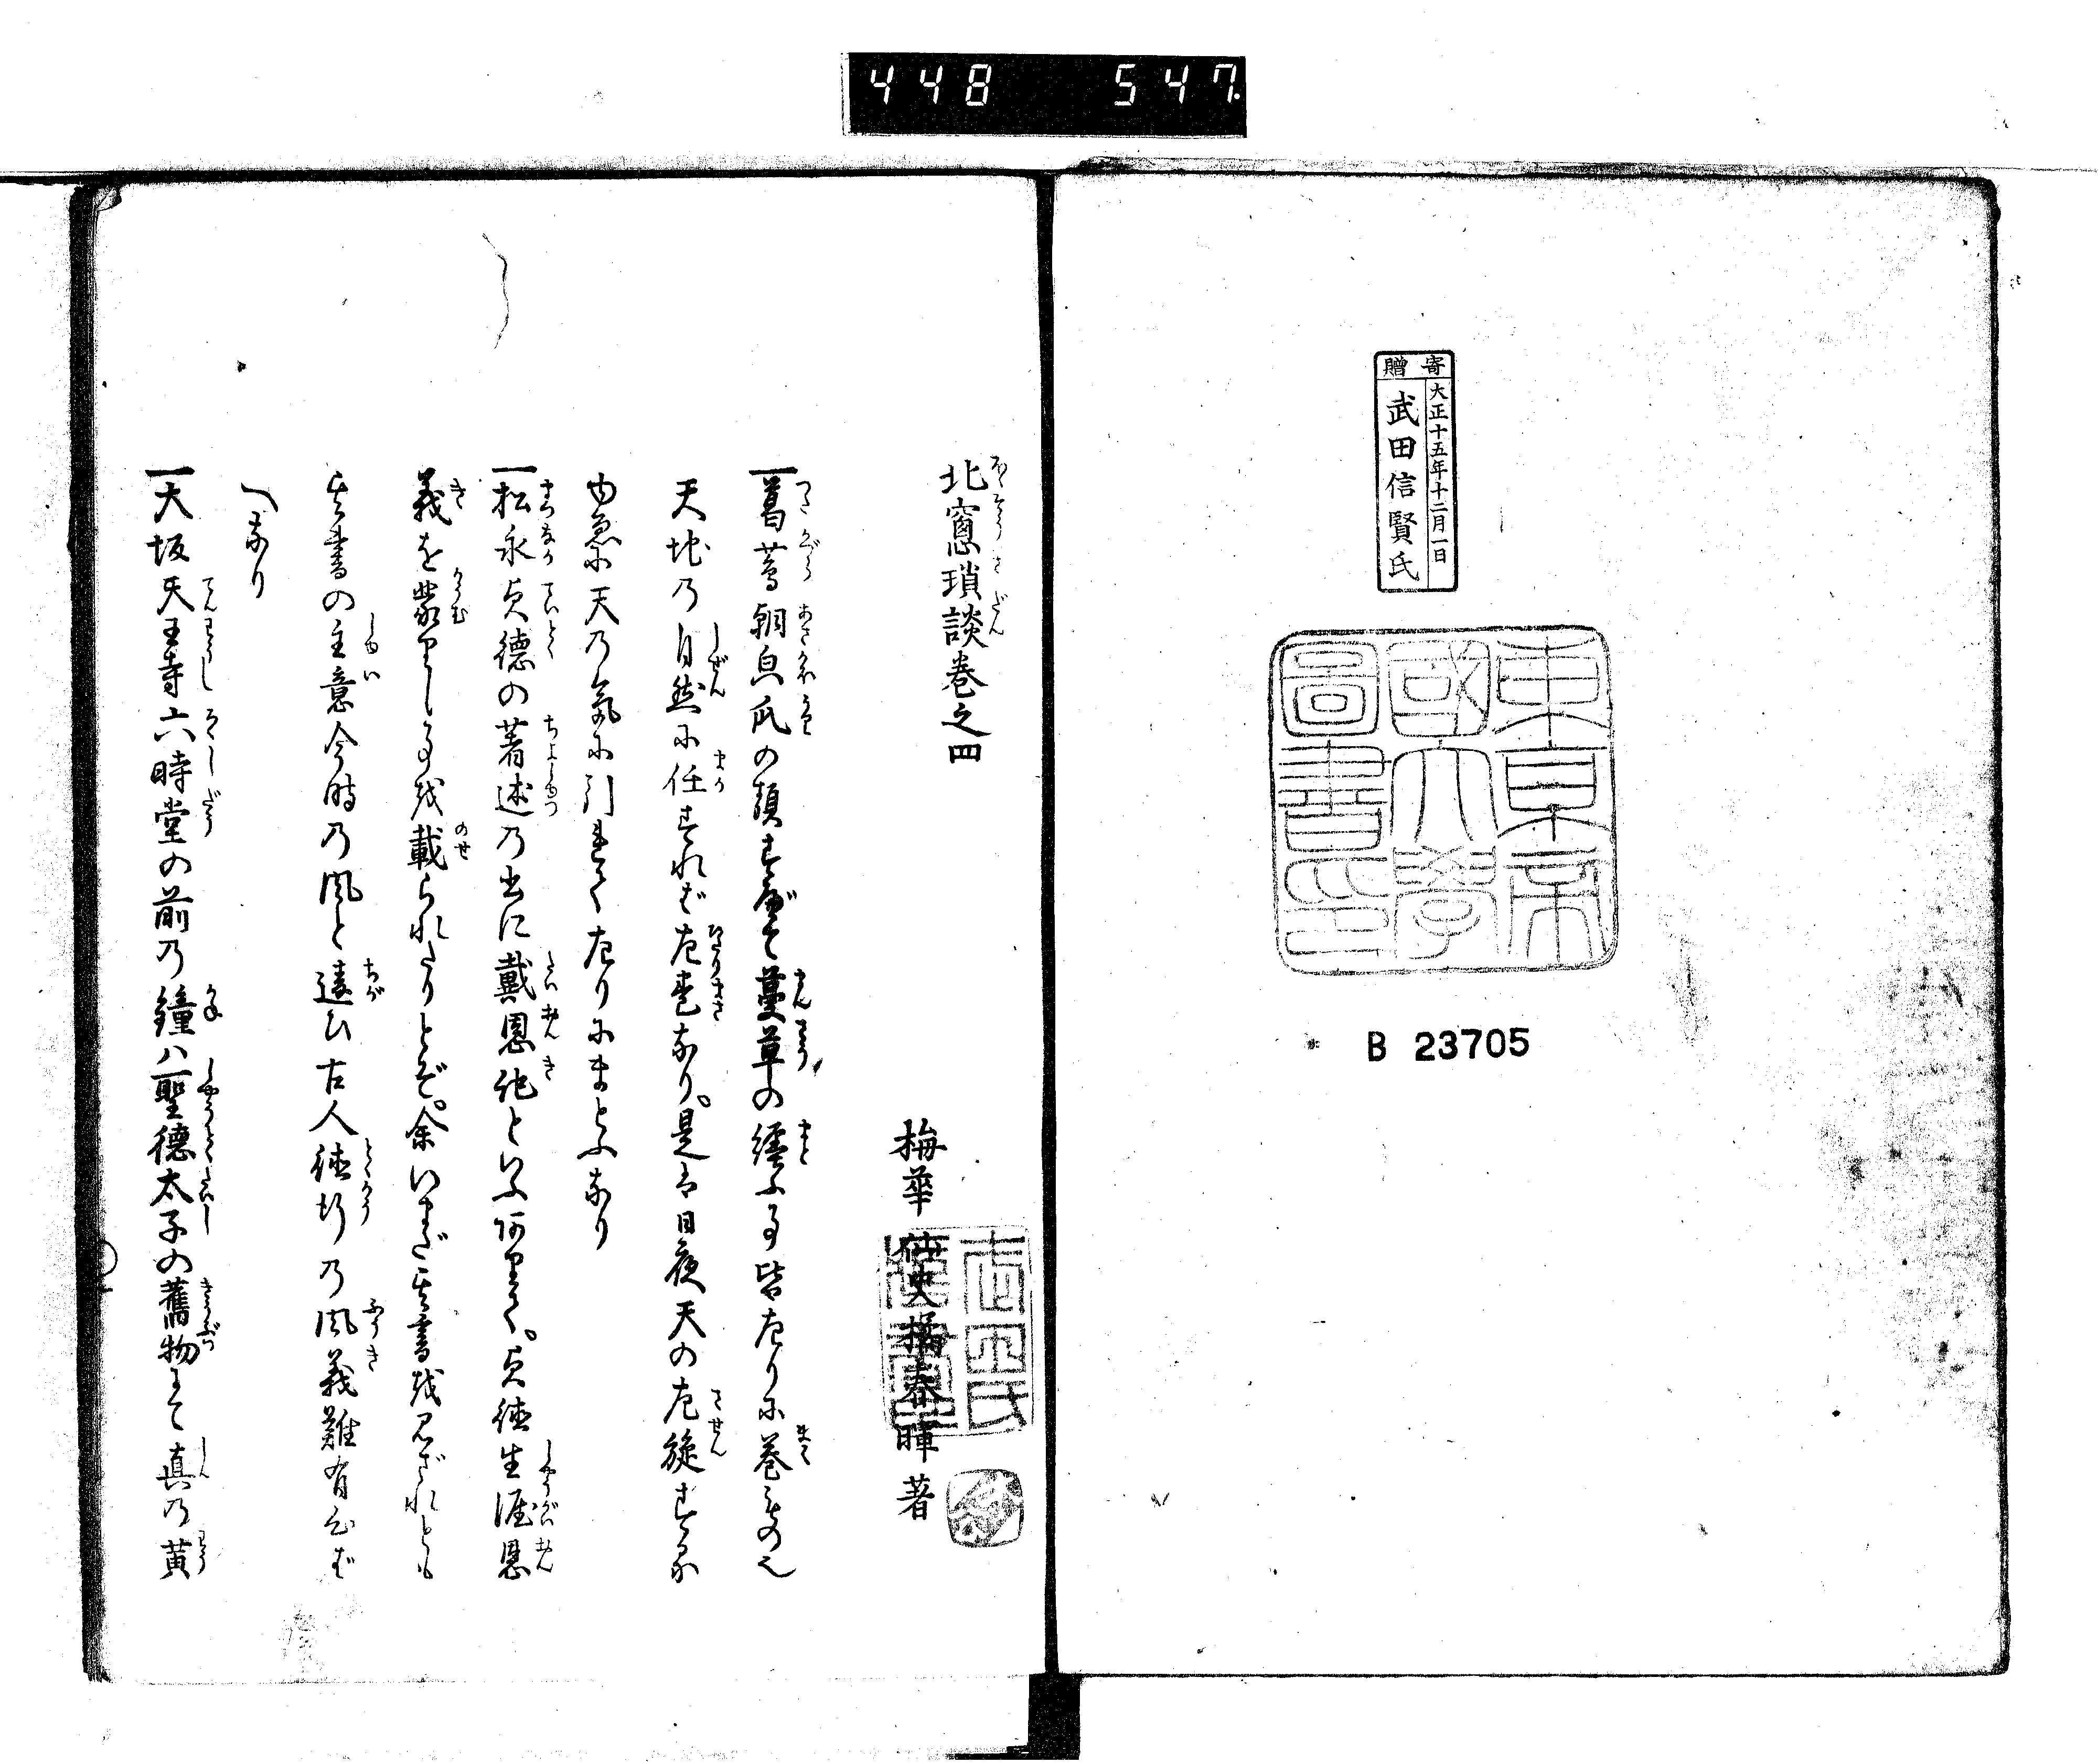 448 547
寄贈
大正十五年十二月一日
武田信賢氏
東京帝
國大學
圖書印
B 23705
北窻瑣談巻之四
梅華仙史橘春暉著
一葛蔦朝皃瓜の類すべて蔓草の纏ふ事皆左りに巻もの也
天地の自然に任すれば左巻なり。是は日夜天の左旋する
ゆゑに天の氣に引れて左りにまとふなり
一松永貞徳の著述の書に戴恩記といふ有りて。貞徳生涯恩
義を蒙りし事を載られたりとぞ。余いまだ其書を見ざれども
其書の主意今時の風と違ひ古人徳行の風義難有云べ
へなり
一大坂天王寺六時堂の前の鐘ハ聖徳太子の舊物にて真の黄